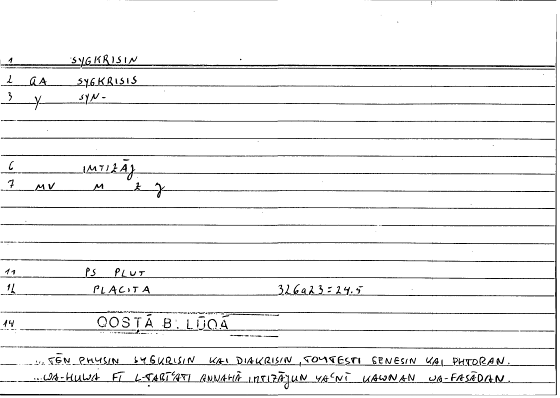 1 SYGKRISIN
2 GA SYGKRISIS
3 y SYN-
6 IMTIZĀǦ
7 MV M Z Ǧ
11 PS PLUT
12 PLACITA 326a23=24.5
14 QOSṬĀ B. LŪQĀ
...TĒN PHYSIN SYGKRISIN KAI DIAKRISIN, TOYTESTI GENESIN KAI PHTORAN.
...WA-HUWA FĪ L-ṬABĪʿATI ANNAHĀ IMTIZĀǦUN YAʿNĪ KAWNAN WA-FASĀDAN.